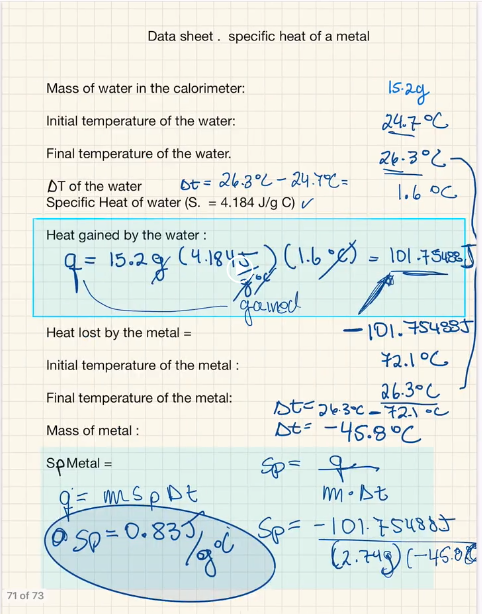 Data sheet . specific heat of a metal
Mass of water in the calorimeter: 15.2g
Initial temperature of the water: 24.7 °C
Final temperature of the water. 26.3°C
ΔT of the water Δt = 26.3°C - 24.7°C = 1.6 °C
Specific Heat of water (S. = 4.184 J/g C) ✓
Heat gained by the water :
q = 15.2g (4.184 J/g°C) (1.6 °C) = 101.75488J
gained
Heat lost by the metal = -101.75488J
Initial temperature of the metal : 72.1°C
Final temperature of the metal: 26.3°C
Δt = 26.3°C - 72.1°C
Mass of metal : Δt = -45.8°C
SpMetal = Sp = q / m · Δt
q = m Sp Δt
Sp = 0.83J/g°C
Sp = -101.75488J / (2.74g) (-45.8°C
71 of 73